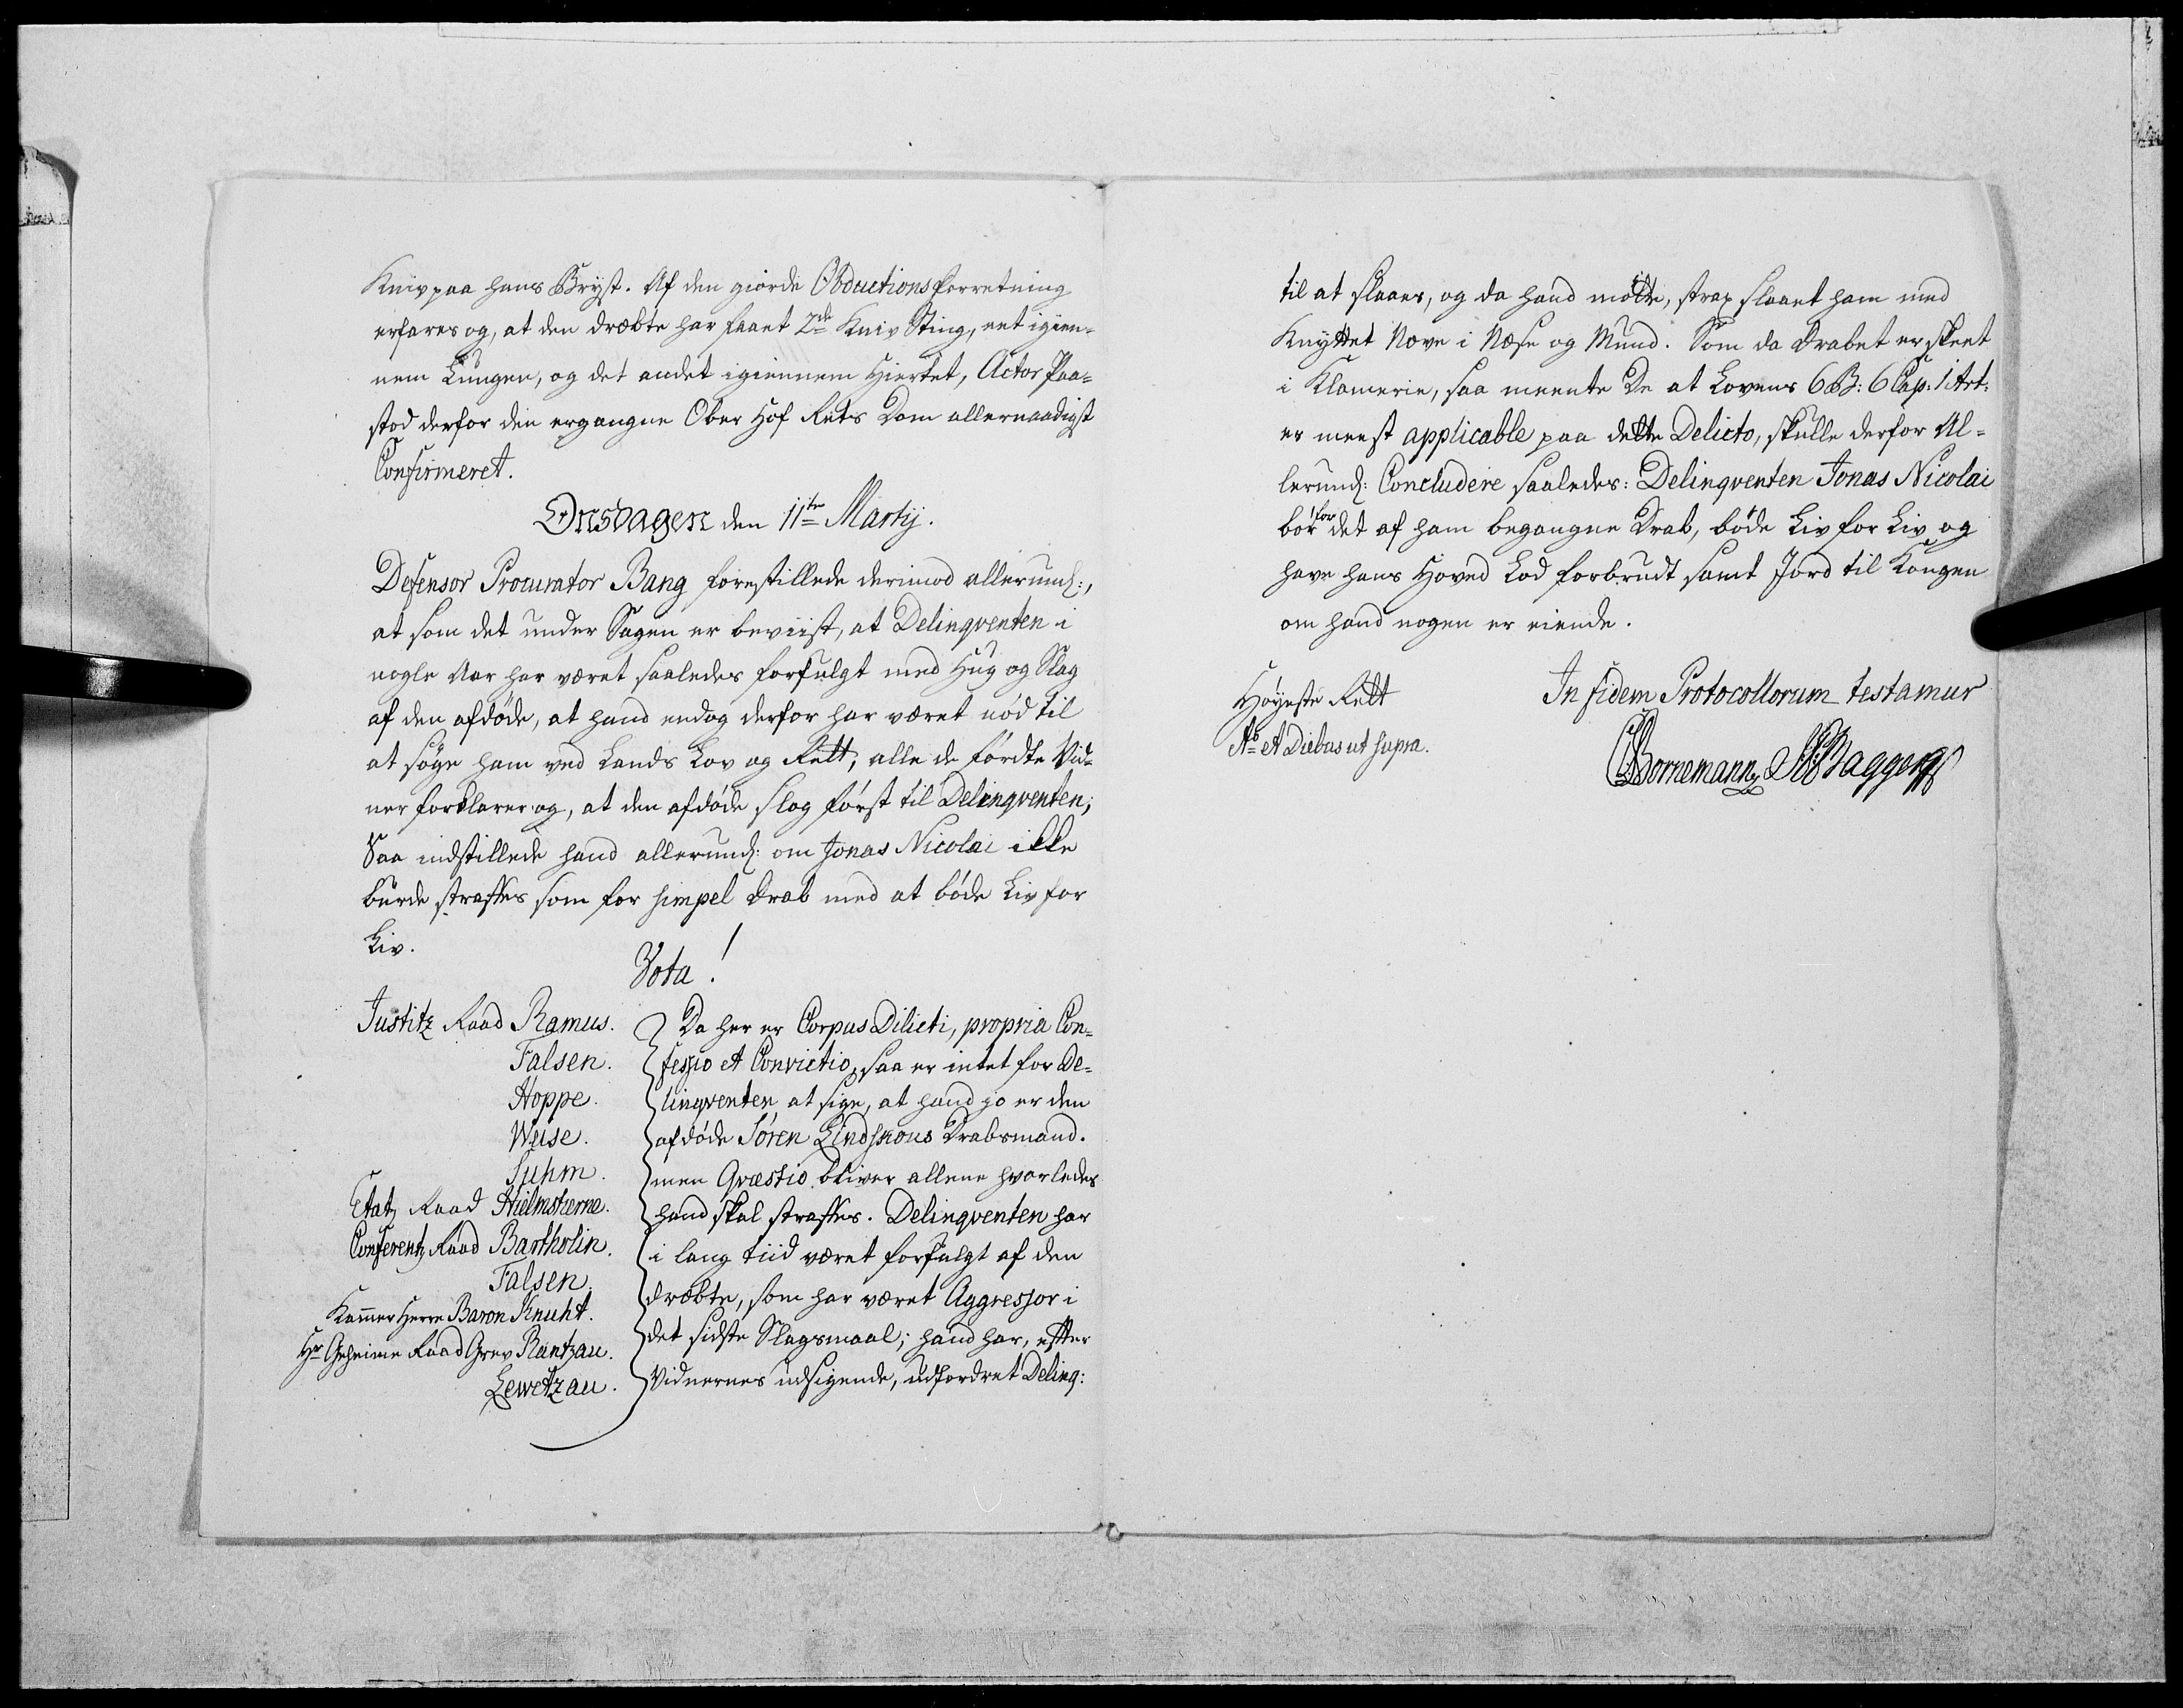 Kniv paa hans Bryst. Af den giorde Obductions Forretning
erfares og, at den dræbte har faaet 2de Kniv Sting, eet igien¬
nem Lungen, og det andet igiennem Hiertet, Actor Paa¬
stod derfor den ergangne Ober Hof Rets Dom allernaadigst
Confirmeret.
Onsdagen den 11te Martij.
Defensor Procurator Bang forestillede derimod allerund:,
at som det under Sagen er beviist, at Delinqventen i
nogle Aar har været saaledes forfulgt med Hug og Slag
af den afdøde, at hand endog derfor har været nød til
at søge ham ved Lands Lov og Rett, alle de førdte Vid¬
ner forklarer og, at den afdøde slog først til Delinqventen;
Saa indstillede hand allerund: om Jonas Nicolai ikke
burde straffes som for simpel Drab med at bøde Liv for
Liv.
Vota!
Justitz Raad Ramus.
Falsen.
Hoppe.
Weise.
Suhm.
Etatz Raad Hielmstierne.
Conferentz Raad Bartholin.
Falsen.
Kammer Herre Baron Knuht.
Hr Geheime Raad Grev Rantzau.
Lewetzau.
Da her er Corpus Dilicti, propria Con¬
fessio et Convictio, saa er intet for De¬
linqventen at sige, at hand jo er den
afdøde Søren Lindskous Drabsmand.
men Qvæstio bliver allene hvorledes
hand skal straffes. Delinqventen har
i lang tiid været forfulgt af den
dræbte, som har været Aggressor i
det sidste Slagsmaal; hand har, efter
Vidnernes udsigende, udfordret Delinq:
til at slaaes, og da hand mötte, strax slaaet ham med
Knyttet Næve i Næse og Mund. Som da Drabet er skeet
i Klamerie, saa meente De at Lovens 6 B: 6 Cap: 1 Art:
er meest applicable paa dette Delicto, skulle derfor Al¬
lerund: Concludere saaledes: Delinqventen Jonas Nicolai
bør for det af ham begangne Drab, bøde Liv for Liv og
have hans Hoved Lod forbrudt samt Jord til Kongen
om hand nogen er eiende.
Høyeste Rett
Ao et Diebus ut supra.
In fidem Protocollorum testamur
Bornemann Baggers